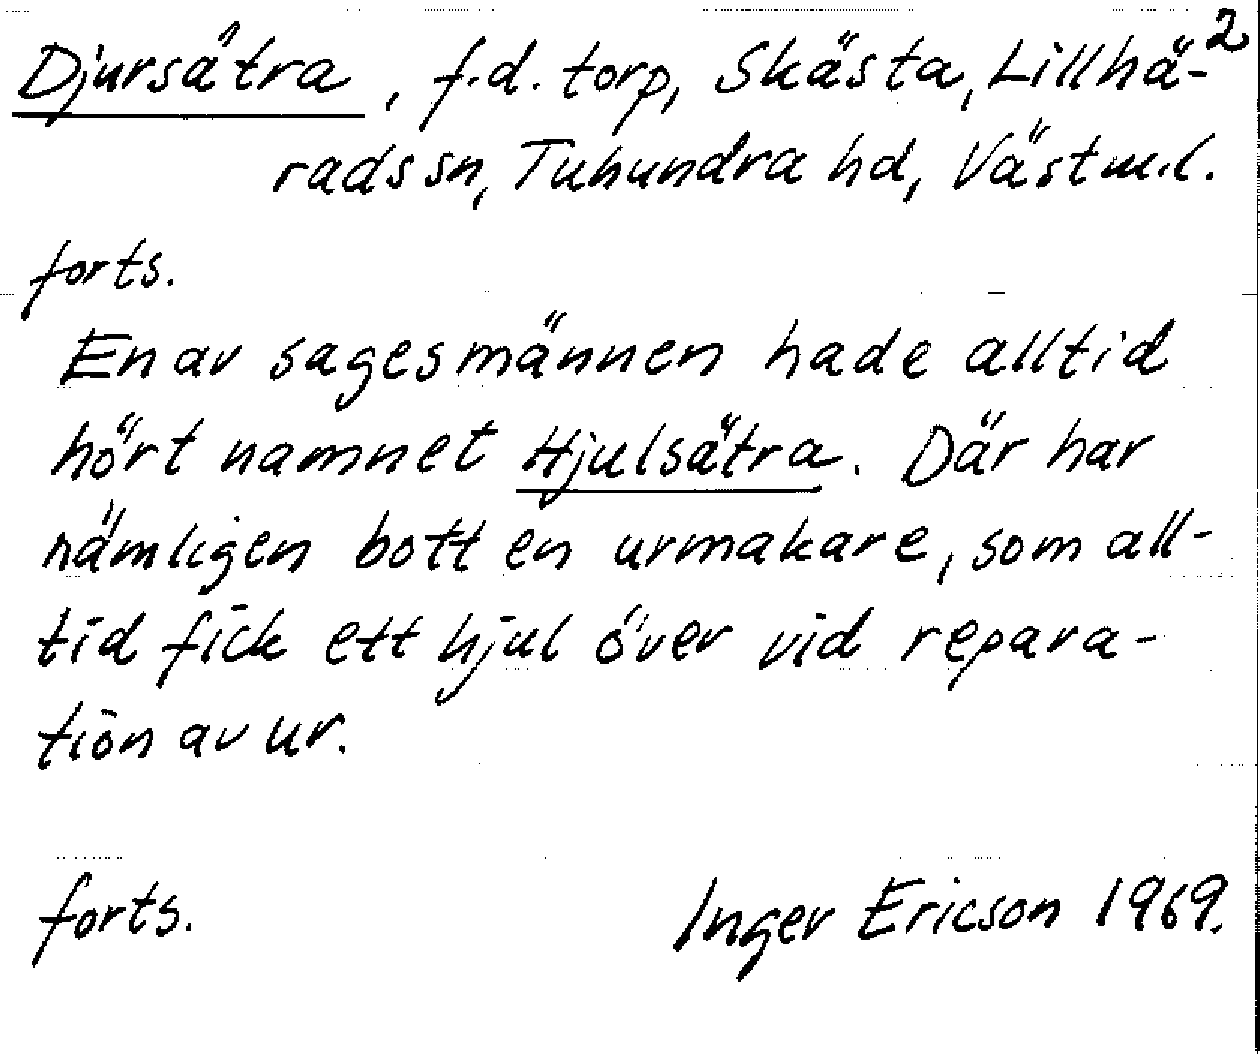 2
Djursätra, f.d. torp, Skästa, Lillhä-
rads sn, Tuhundra hd, Västm.l.
forts.
En av sagesmännen hade alltid
hört namnet Hjulsätra. Där har
nämligen bott en urmakare, som all-
tid fick ett hjul över vid repara-
tion av ur.
forts. Inger Ericson 1969.